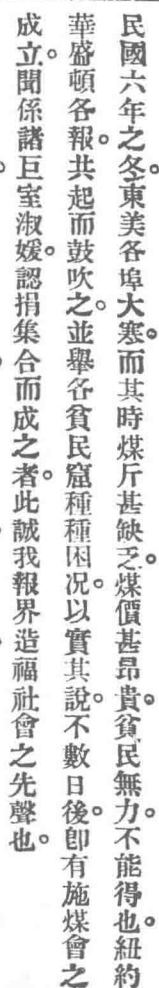 民國六年之冬。東美各埠大寒。而其時煤斤甚缺乏。煤價甚昂貴。貧民無力。不能得也。紐約
華盛頓各報。共起而鼓吹之。並舉各貧民窟種種困况。以實其說。不數日後。卽有施煤會之
成立。聞係諸巨室淑媛。認捐集合而成之者。此誠我報界造福社會之先聲也。